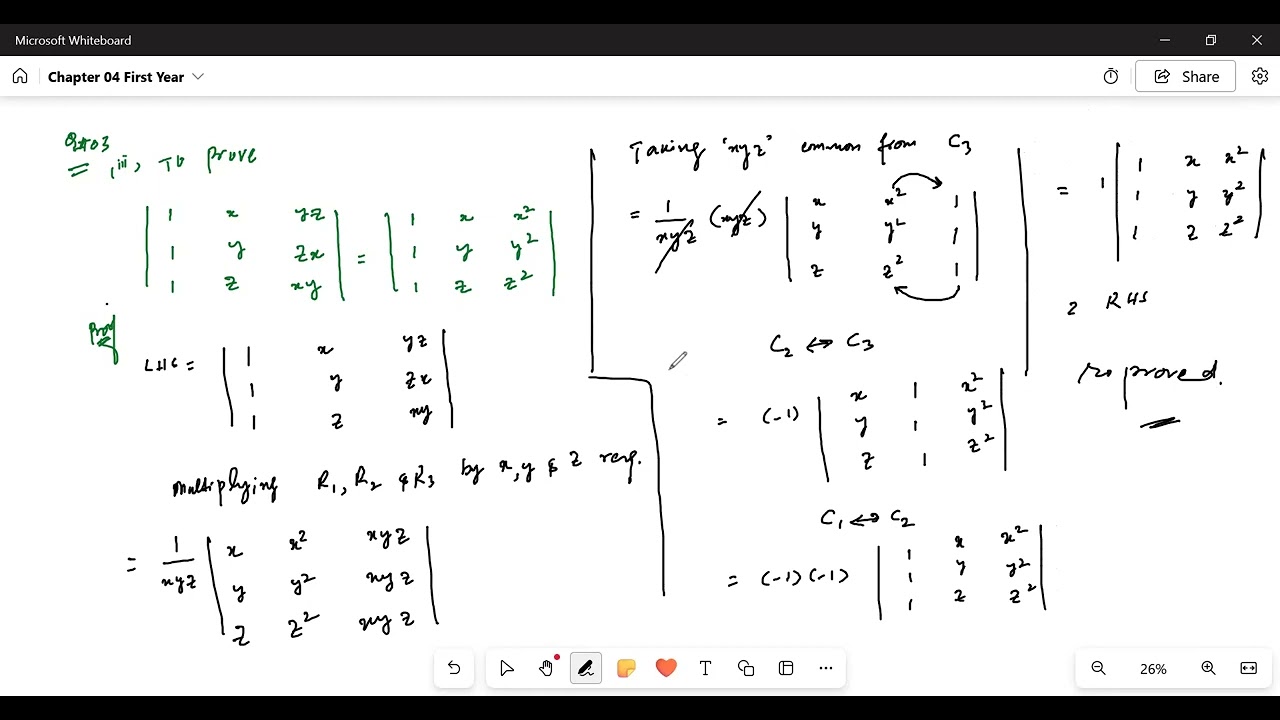 Microsoft Whiteboard
Chapter 04 First Year
Share
Q#03
iii, To prove
| 1 x yz | = | 1 x x² |
| 1 y zx | | 1 y y² |
| 1 z xy | | 1 z z² |
Proof
LHS = | 1 x yz |
| 1 y zx |
| 1 z xy |
Multiplying R₁, R₂ & R₃ by x, y & z resp.
= 1/xyz | x x² xyz |
| y y² xyz |
| z z² xyz |
Taking 'xyz' common from C₃
= 1/xyz (xyz) | x x² 1 |
| y y² 1 |
| z z² 1 |
C₂ ↔ C₃
= (-1) | x 1 x² |
| y 1 y² |
| z 1 z² |
C₁ ↔ C₂
= (-1)(-1) | 1 x x² |
| 1 y y² |
| 1 z z² |
= 1 | 1 x x² |
| 1 y y² |
| 1 z z² |
RHS
proved.
26%